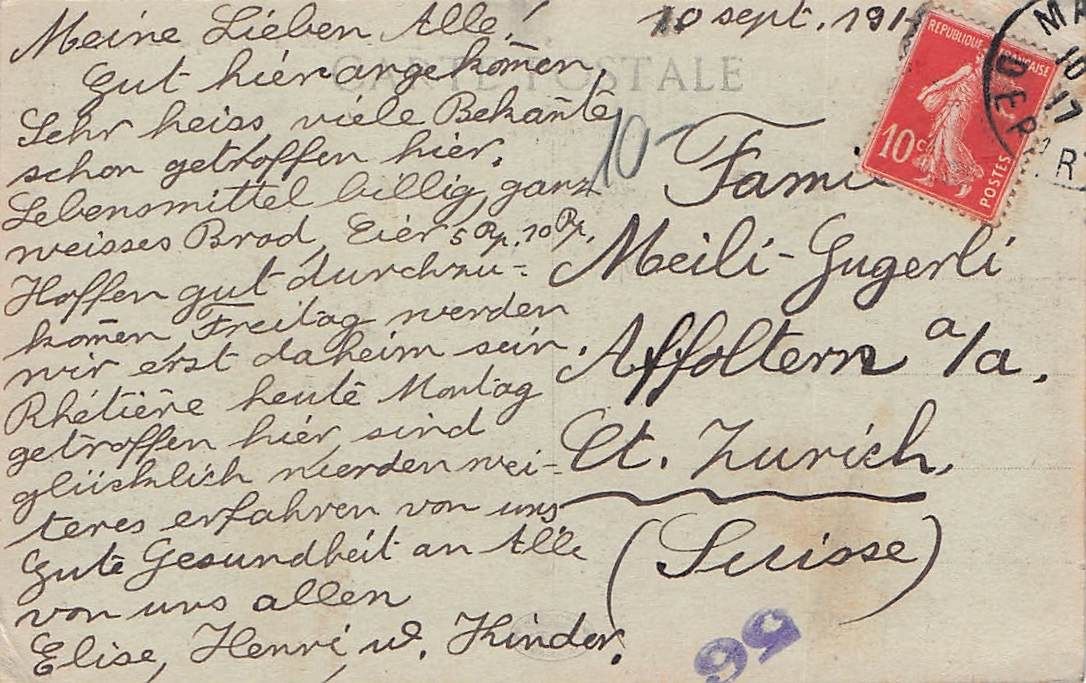 Meine Lieben Alle!
Gut hier angekom̄en,
Sehr heiss, viele Bekan̄te
schon getroffen hier.
Lebensmittel billig, ganz
weisses Brod, Eier 5 Rp. 10 Rp.
Hoffen gut durchzu-
kom̄en, Freitag werden
wir erst daheim sein.
Rhétière heute Montag
getroffen hier, sind
glücklich werden wei-
teres erfahren von uns
Gute Gesundheit an Alle
von uns allen
Elise, Henri u. Kinder.
10 sept. 191
CARTE POSTALE
10-
REPUBLIQUE FRANÇAISE
10c
POSTES
MA
10
17
DEPART
Fami
Meili-Gugerli
Affoltern a/a.
Ct. Zurich.
(Suisse)
56